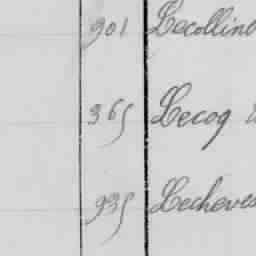 901 Lecollin
365 Lecoq
935 Lecheves